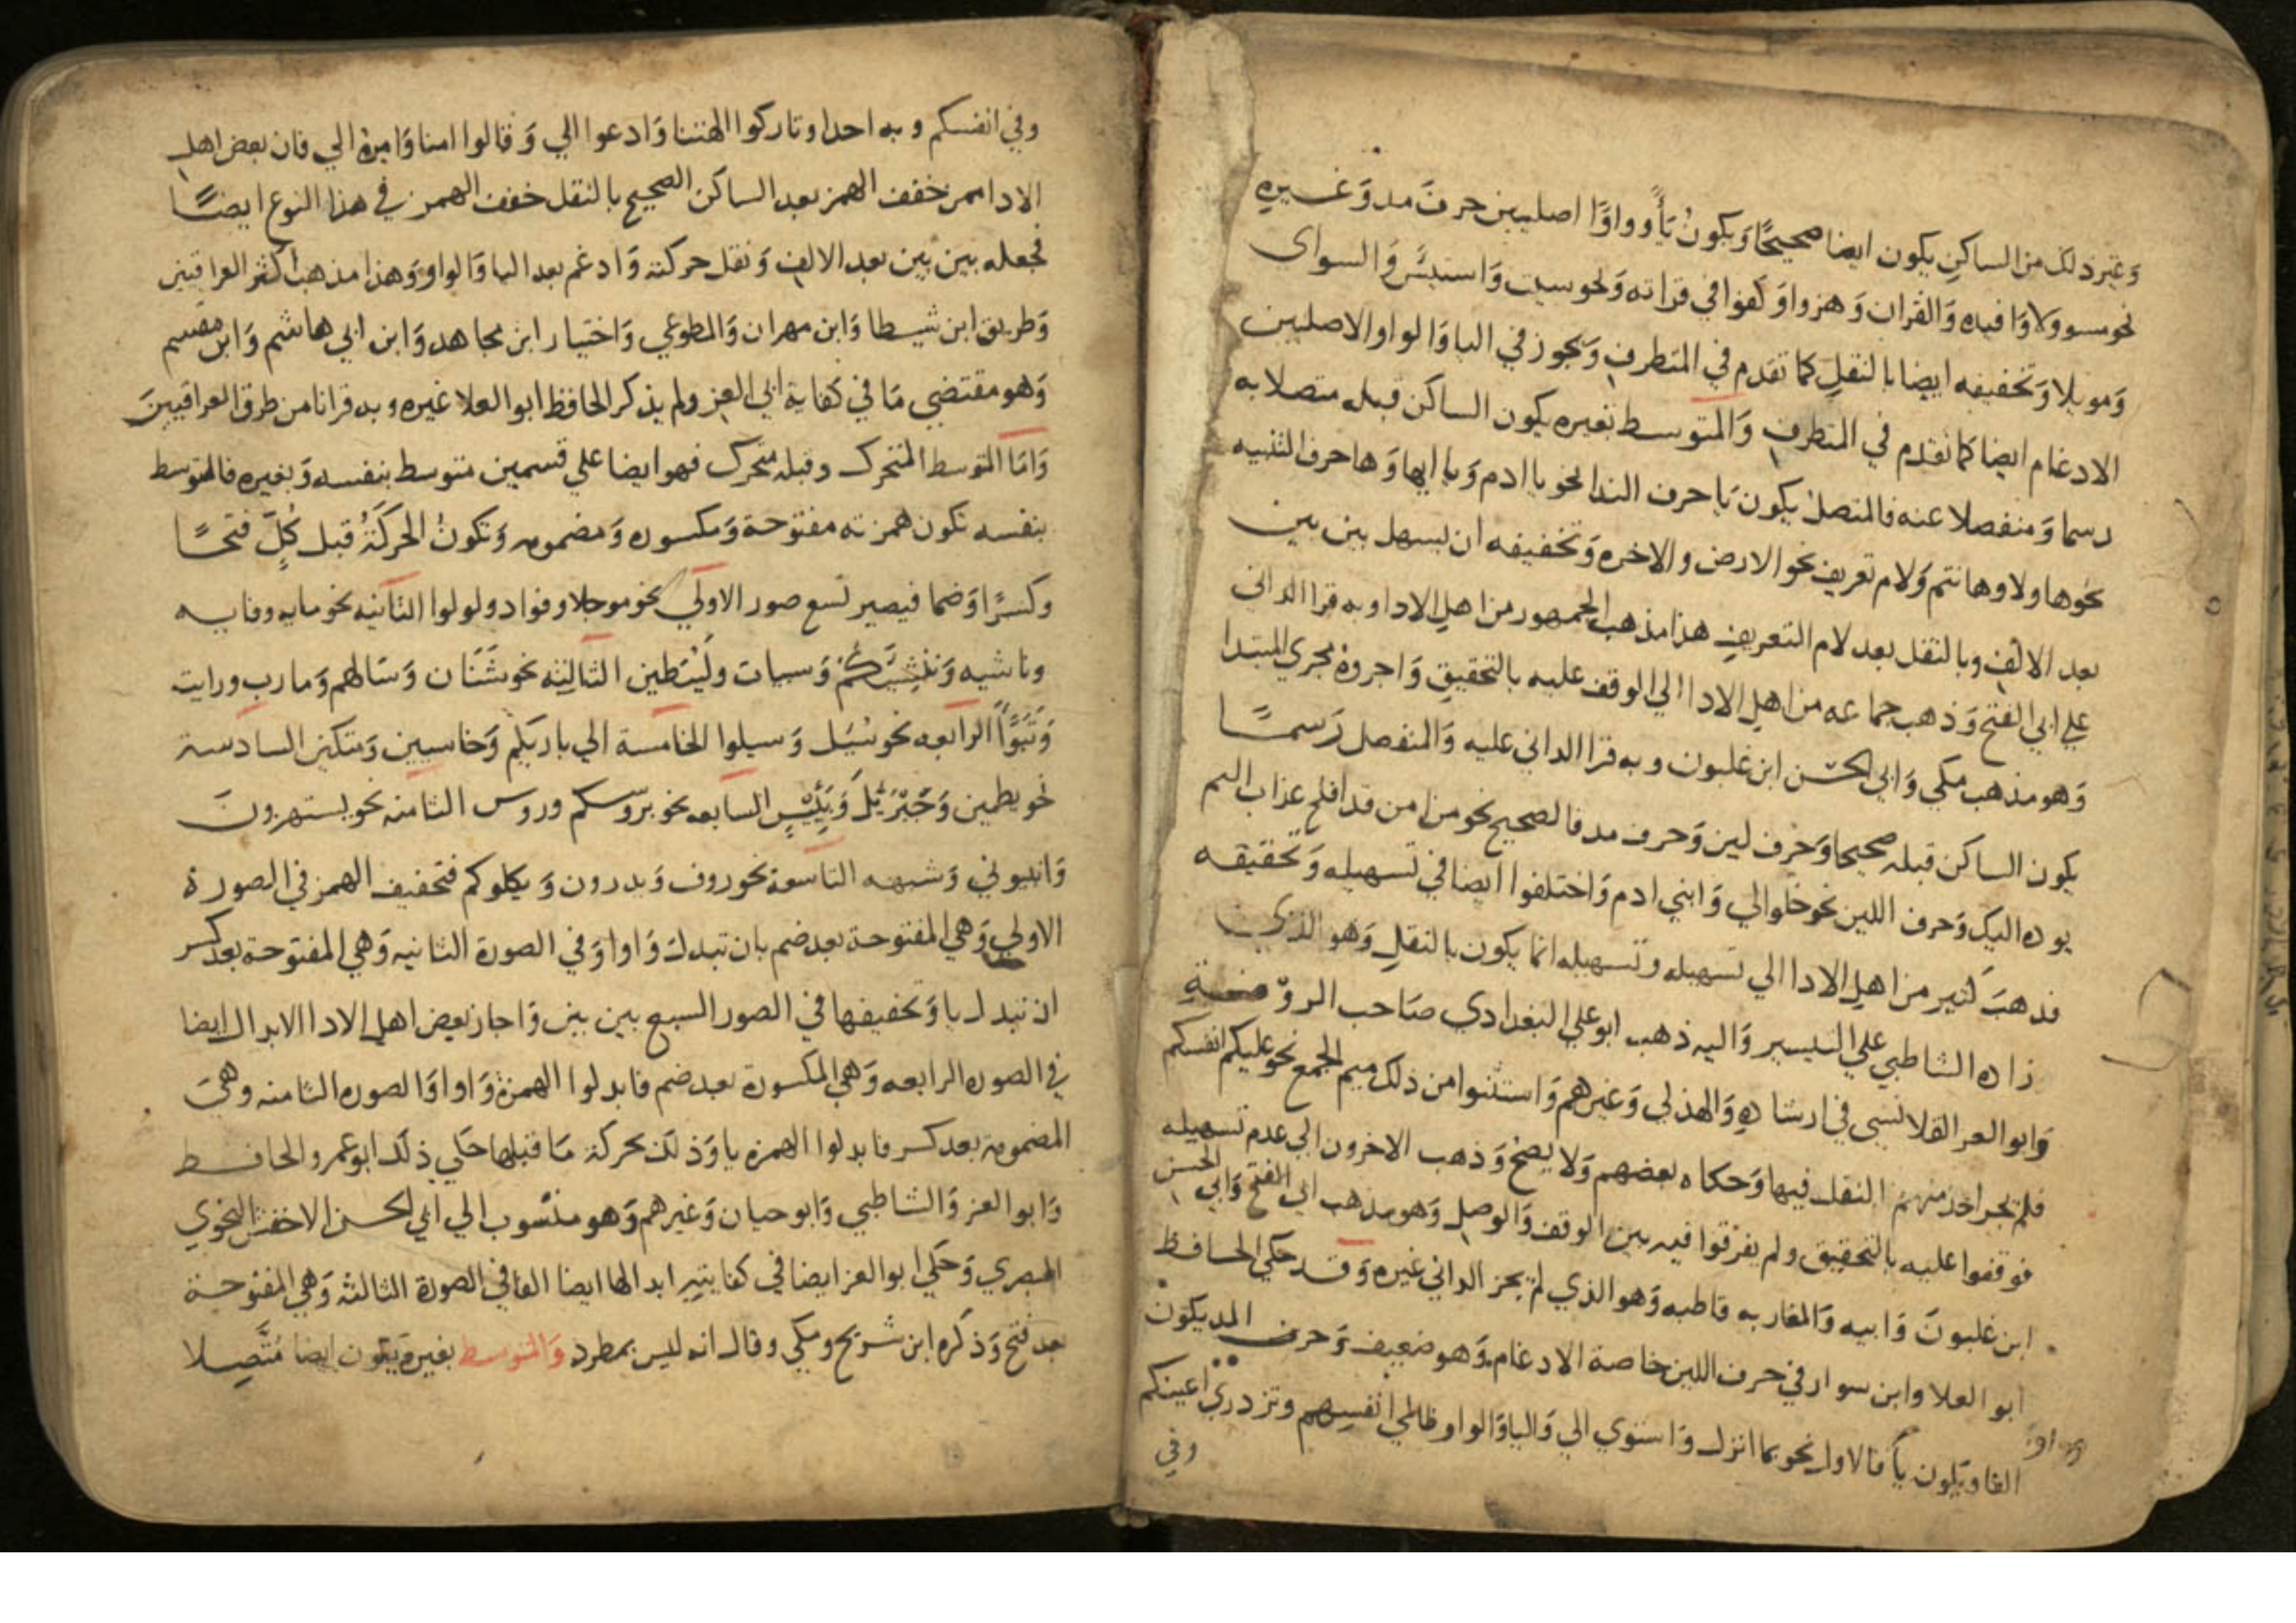 وغير ذلك من الساكن يكون ايضا صحيحًا وَيكونُ يَأً وواوًا اصليين حرفَ مد وَغسيره
نحو مسوولا وَافيده وَالقران وَهزوا وَكفوا في قراته وَنحو سيت وَاستيئس وَالسواى
وَمويلا وَتخفيفه ايضا بالنقلِ كما تقدم في المتطرف وَيجوز في اليا وَالواو الاصليين
الادغام ايضا كما تقدم في المتطرف وَالمتوسط بغيره يكون الساكن قبله متصلا به
رسما وَمنفصلا عنه فالمتصل يكون يَا حرف الندا نحو يا ادم وَيا ايها وَها حرف التنبيه
نحو هاولا وهانتم وَلام تعريف نحو الارض والاخره وَتخفيفه ان يسهل بين بين
بعد الالف وبالنقل بعد لام التعريف هذا مذهب الجمهور من اهل الادا وبه قرا الدانى
على ابي الفتح وَذهب جماعه من اهل الادا الي الوقف عليه بالتحقيق وَاجروهُ مجرى المبتدا
وَهو مذهب مكي وَابي الحسن ابن غلبون وبه قرا الداني عليه وَالمنفصل رَسمًا
يكون الساكن قبله صحيحا وَحرف لين وَحرف مد فالصحيح نحو من امن قد افلح عذاب اليم
يوده اليك وَحرف اللين نحو خلوا الي وَابني ادم وَاختلفوا ايضا في تسهيله وَتحقيقه
فذهبَ كثير من اهل الادا الي تسهيله وتسهيله انما يكون بالنقل وَهو الذي
زاده الشاطبي علي التيسير وَاليه ذهب ابو علي البغدادي صَاحب الروضة
وَابو العز القلانسى في ارشاده وَالهذلي وَغيرهم وَاستثنوا من ذلك ميم الجمع نحو عليكم انفسكم
فلم يجز احد منهم النقل فيها وَحكاه بعضهم وَلا يصحُ وَذهب الاخرون الي عدم تسهيله
فوقفوا عليه بالتحقيق ولم يفرقوا فيه بين الوقف وَالوصل وَهو مذهب ابي الفتح وَابي الحسن
ابن غلبونَ وَابيه وَالمغاربه قاطبه وَهو الذي لم يجز الداني غيره وَقد حكي الحافظ
ابو العلا وابن سوار في حرف اللين خاصة الادغام وَهو ضعيف وَحرف المد يكون
الفا ويكون يَا فالاول نحو بما انزل وَاستوي الي وَاليا وَالواو ظالمي انفسهم وتزدري اعينكم
وفي
وفي انفسكم وبه احدا وتاركوا الهتنا وَادعوا الي وَقالوا امنا وَامرهُ الي فان بعض اهل
الادا ممن خفف الهمز بعد الساكن الصحيح بالنقل خفف الهمز في هذا النوع ايضًا
فجعله بين بين بعد الالف وَنقل حركته وَادغم بعد اليا وَالواو وَهذا مذهب اكثر العراقيين
وَطريق ابن شيطا وَابن مهران وَالمطوعي وَاختيار ابن مجاهد وَابن ابي هاشم وَابن مقسم
وَهو مقتضي مَا في كفاية ابي العز ولم يذكر الحافظ ابو العلا غيره وبه قرانا من طرق العراقيينَ
وَامَا المتوسط المتحرك وقبله متحرك فهو ايضا علي قسمين متوسط بنفسه وَبغيره فالمتوسط
بنفسه تكون همزته مفتوحة وَمكسوره وَمضمومه وَتكونُ الحركَةُ قبل كُلٍّ فتحًا
وكسرًا وَضما فيصير تسع صور الاولي نحو موجلا وفواد ولولوا الثانيه نحو مايه وفايه
وناشيه وَننشِيَكُم وَسيات وليُبَطين الثالثه نحو شَنَان وَسَالهم وَمارب ورايت
وَتَبَوَّا الرابعه نحو سُيِل وَسيلوا الخامسة الي بارئكم وَخاسيين وَمتكين السادسة
نحو يطمين وَجَبْرَئيلَ وَيَئِسَ السابعه نحو بروسكم وروس الثامنه نحو يستهزونَ
وَانبيوني وَشبهه التاسعة نحو روف وَيدرون وَيكلوكم فتخفيف الهمز في الصورة
الاولي وَهي المفتوحة بعد ضم بان تبدل وَاوا وَفي الصورة الثانيه وَهي المفتوحة بعد كسر
ان تبدل يا وَتخفيفها في الصور السبع بين بين وَاجاز بعض اهل الادا الابدال ايضا
في الصوره الرابعه وَهي المكسورة بعد ضم فابدلوا الهمزة وَاوا وَالصوره الثامنه وهيَ
المضمومة بعد كسر فابدلوا الهمزه يا وَذلك بحركة مَا قبلها حَكي ذلك ابو عمرو الحافظ
وَابو العز وَالشاطبي وَابو حيان وَغيرهم وَهو منسُوب الي ابي الحسن الاخفش النحوي
البصري وَحكي ابو العز ايضا في كفايته ابدالها ايضا الفا في الصورة الثالثة وَهي المفتوحة
بعد فتح وَذكره ابن شريح ومكي وقال انه ليس بمطرد وَالمتوسط بغيره وَيكون ايضا مُتَّصِلا